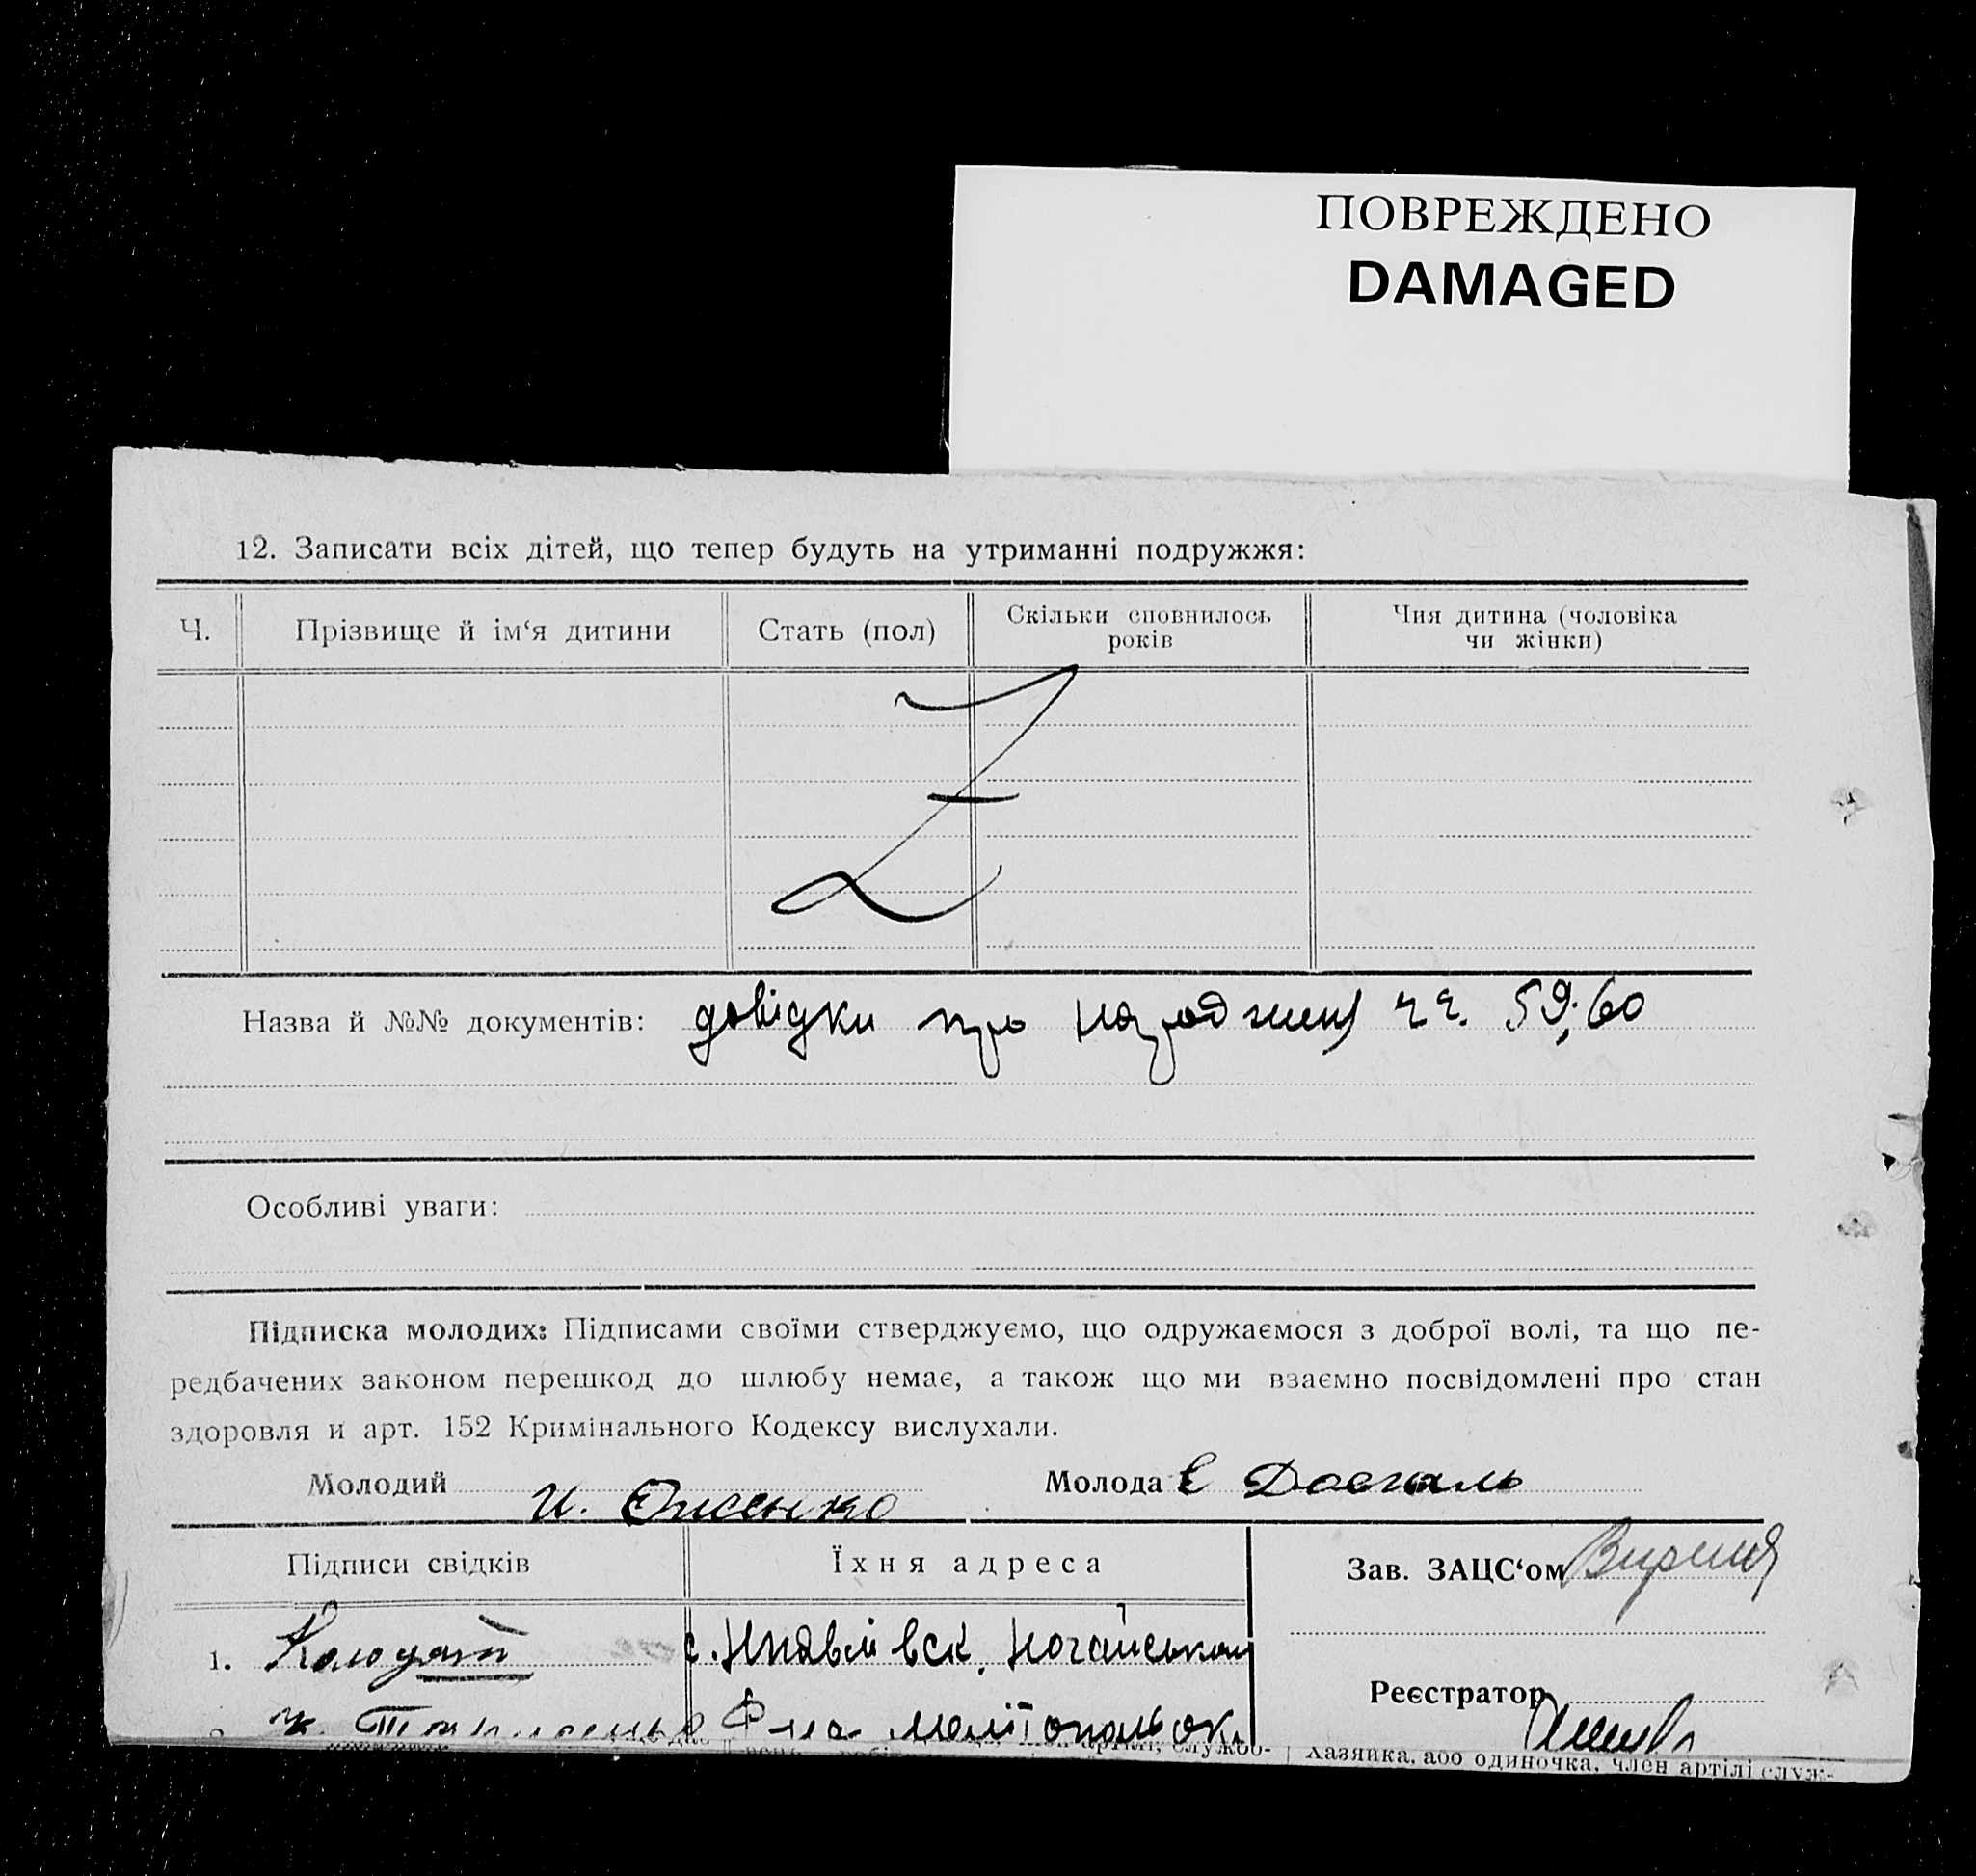 ПОВРЕЖДЕНО
DAMAGED
12. Записати всіх дітей, що тепер будуть на утриманні подружжя:
Ч. Прізвище й ім‘я дитини Стать (пол) Скільки сповнилось років Чия дитина (чоловіка чи жінки)
Назва й №№ документів: довідки про народження чч. 59; 60
Особливі уваги:
Підписка молодих: Підписами своїми стверджуємо, що одружаємося з доброї волі, та що пе-
редбачених законом перешкод до шлюбу немає, а також що ми взаємно посвідомлені про стан
здоровля и арт. 152 Кримінального Кодексу вислухали.
Молодий И. Молода Є Довгаль
Підписи свідків Їхня адреса Зав. ЗАЦС‘ом
1. с. Ногайського
Реєстратор
Мелітопольок
службо- хазяика, або одиночка, член артілі служ-